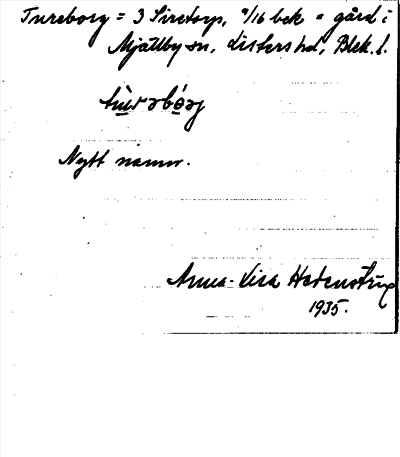 Tureborg = 3 Siretorp, 9/16 bck = gård i
Mjällby sn, Listers hd, Blek. l.
tù̱rəbò̱rj
Nytt namn.
Anna-Lisa Hedenstrup
1935.